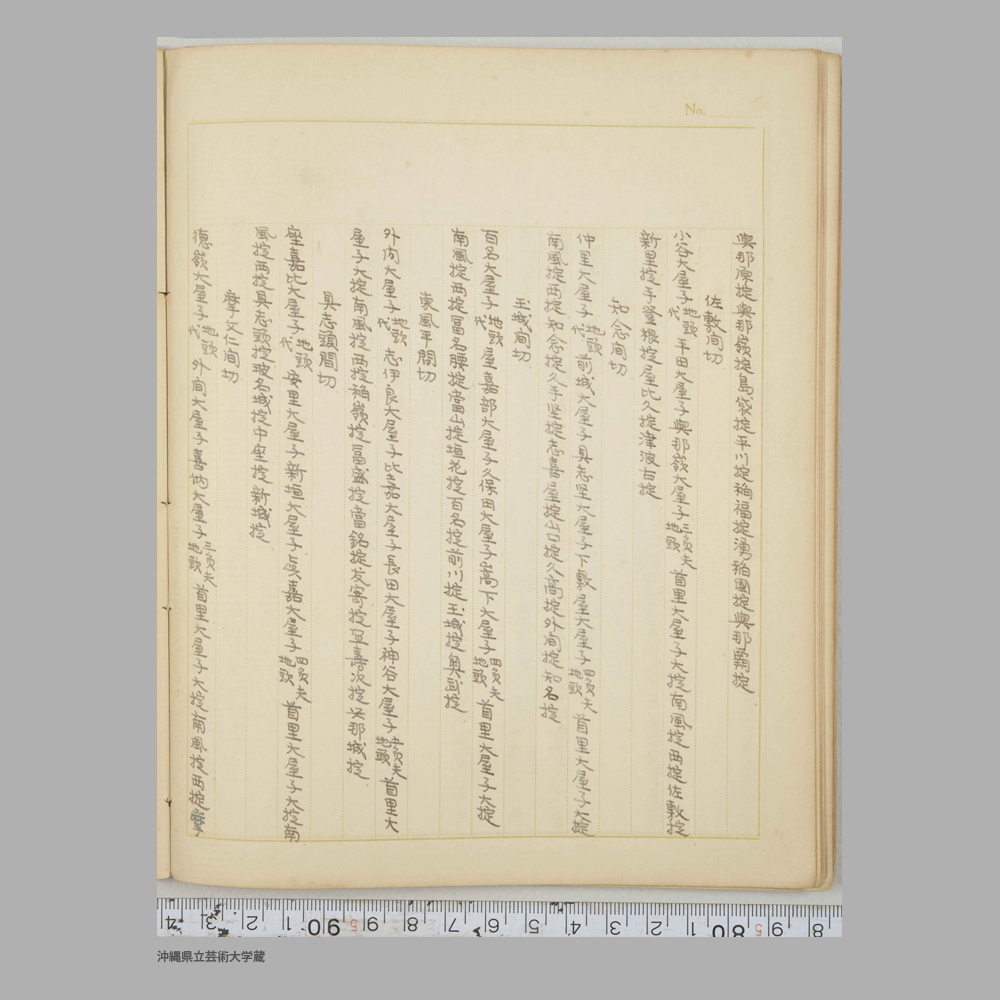 No.
與那原掟與那嶺掟島袋掟平川掟稲福掟湧稲國掟與那覇掟
佐敷間切
小谷大屋子地頭代平田大屋子與那嶺大屋子三夫地頭首里大屋子大掟南風掟西掟佐敷掟
新里掟手登根掟屋比久掟津波古掟
知念間切
仲里大屋子地頭代前城大屋子具志堅大屋子下敷屋大屋子四夫地頭首里大屋子大掟
南風掟西掟知念掟久手堅掟志喜屋掟山口掟久高掟外間掟知名掟
玉城間切
百名大屋子地頭代屋嘉部大屋子久保田大屋子嵩下大屋子四夫地頭首里大屋子大掟
南風掟西掟冨名腰掟當山掟垣花掟百名掟前川掟玉城掟奥武掟
東風平間切
外間大屋子地頭代志伊良大屋子比嘉大屋子長田大屋子神谷大屋子夫地頭首里大
屋子大掟南風掟西掟稲嶺掟冨盛掟當銘掟友寄掟宜壽次掟呉那城掟
具志頭間切
座嘉比大屋子地頭代安里大屋子新垣大屋子嘉大屋子四夫地頭首里大屋子大掟南
風掟西掟具志頭掟玻名城掟中座掟新城掟
摩文仁間切
徳嶺大屋子地頭代外間大屋子喜納大屋子三夫地頭首里大屋子大掟南風掟西掟摩
4 3 2 1 90 5 9 8 7 6 5 4 3 2 1 80 5 9 8
沖縄県立芸術大学蔵